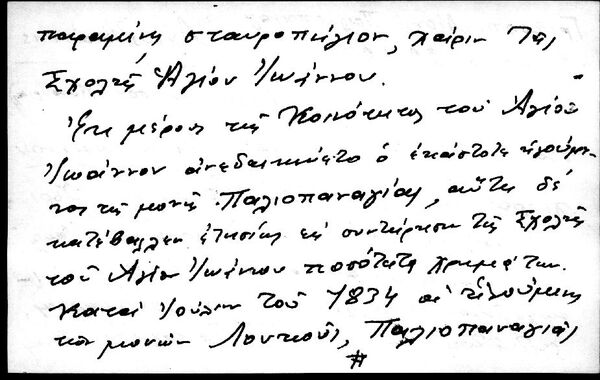 παραμείνῃ σταυροπήγιον, χάριν τῆς
Σχολῆς Ἁγίου Ἰωάννου.
Ἐκ μέρους τῆς Κοινότητος τοῦ Ἁγίου
Ἰωάννου ἀνεδεικνύετο ὁ ἑκάστοτε ἡγούμε-
νος τῆς μονῆς Παλιοπαναγιᾶς, αὕτη δέ
κατέβαλλεν ἐτησίως εἰς συντήρησιν τῆς Σχολῆς
τοῦ Ἁγίου Ἰωάννου ποσότητα χρημάτων.
Κατά Ἰούλιον τοῦ 1834 οἱ ἡγούμενοι
τῶν μονῶν Λουκοῦς, Παλιοπαναγιᾶς
#